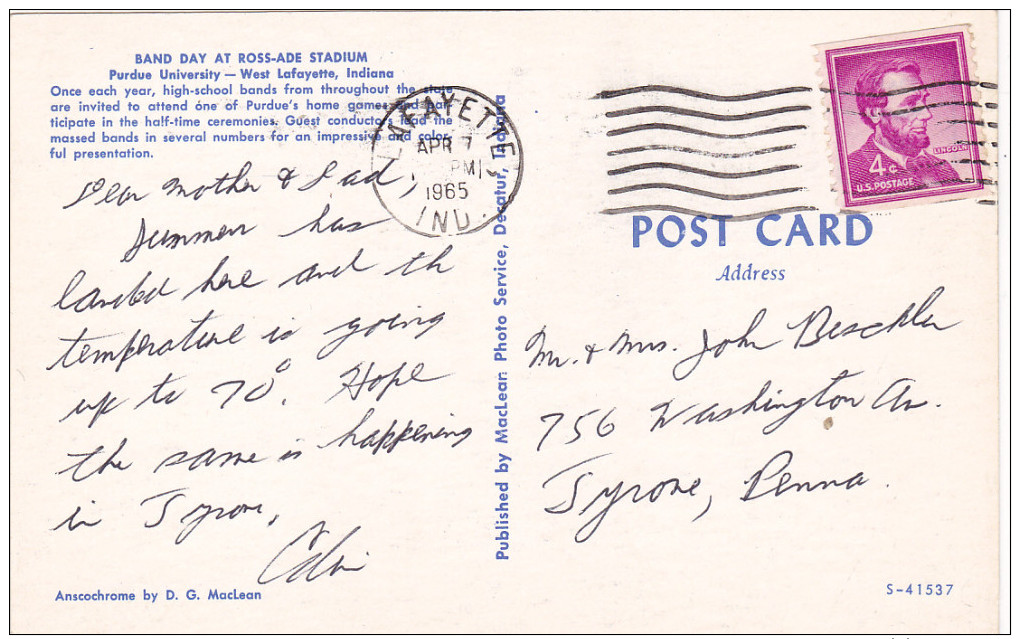 BAND DAY AT ROSS-ADE STADIUM
Purdue University — West Lafayette, Indiana
Once each year, high-school bands from throughout the state
are invited to attend one of Purdue's home games and par-
ticipate in the half-time ceremonies. Guest conductors lead the
massed bands in several numbers for an impressive and color-
ful presentation.
Dear Mother & Dad,
Summer has
landed here and th
temperature is going
up to 70°. Hope
the same is happening
in Tyrone,
Anscochrome by D. G. MacLean
LAFAYETTE
APR 7
PM
1965
IND.
Published by MacLean Photo Service, Decatur, Indiana
LINCOLN
4¢
U.S. POSTAGE
POST CARD
Address
Mr. & Mrs. John Beschler
756 Washington Av.
Tyrone, Penna.
S-41537